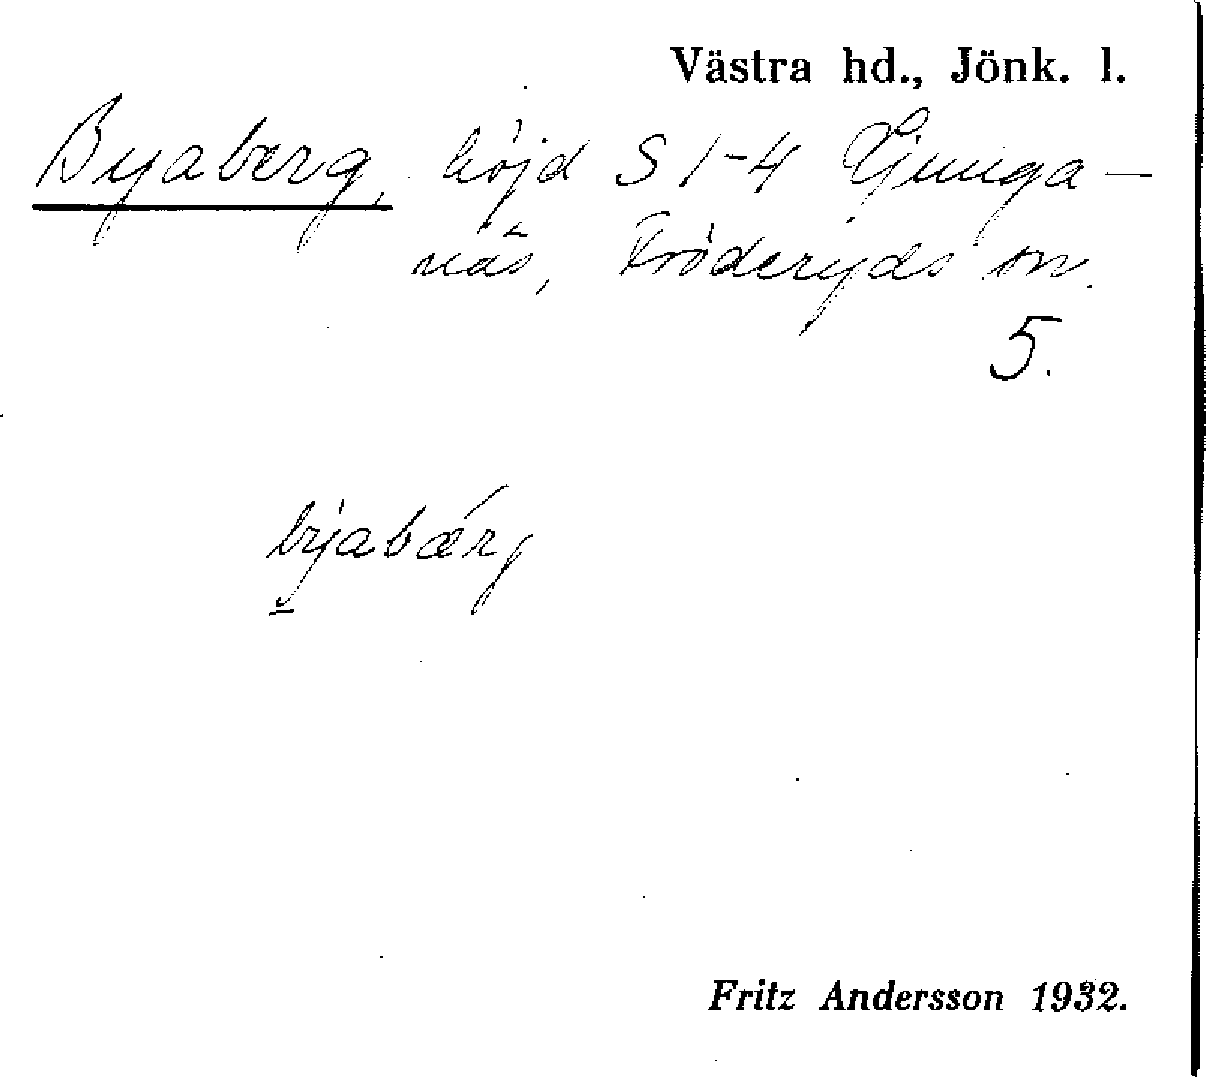 Västra hd., Jönk. l.
Byaberg, höjd S 1-4 Ljunga-
näs, Fröderyds sn.
5.
byabærg
Fritz Andersson 1932.